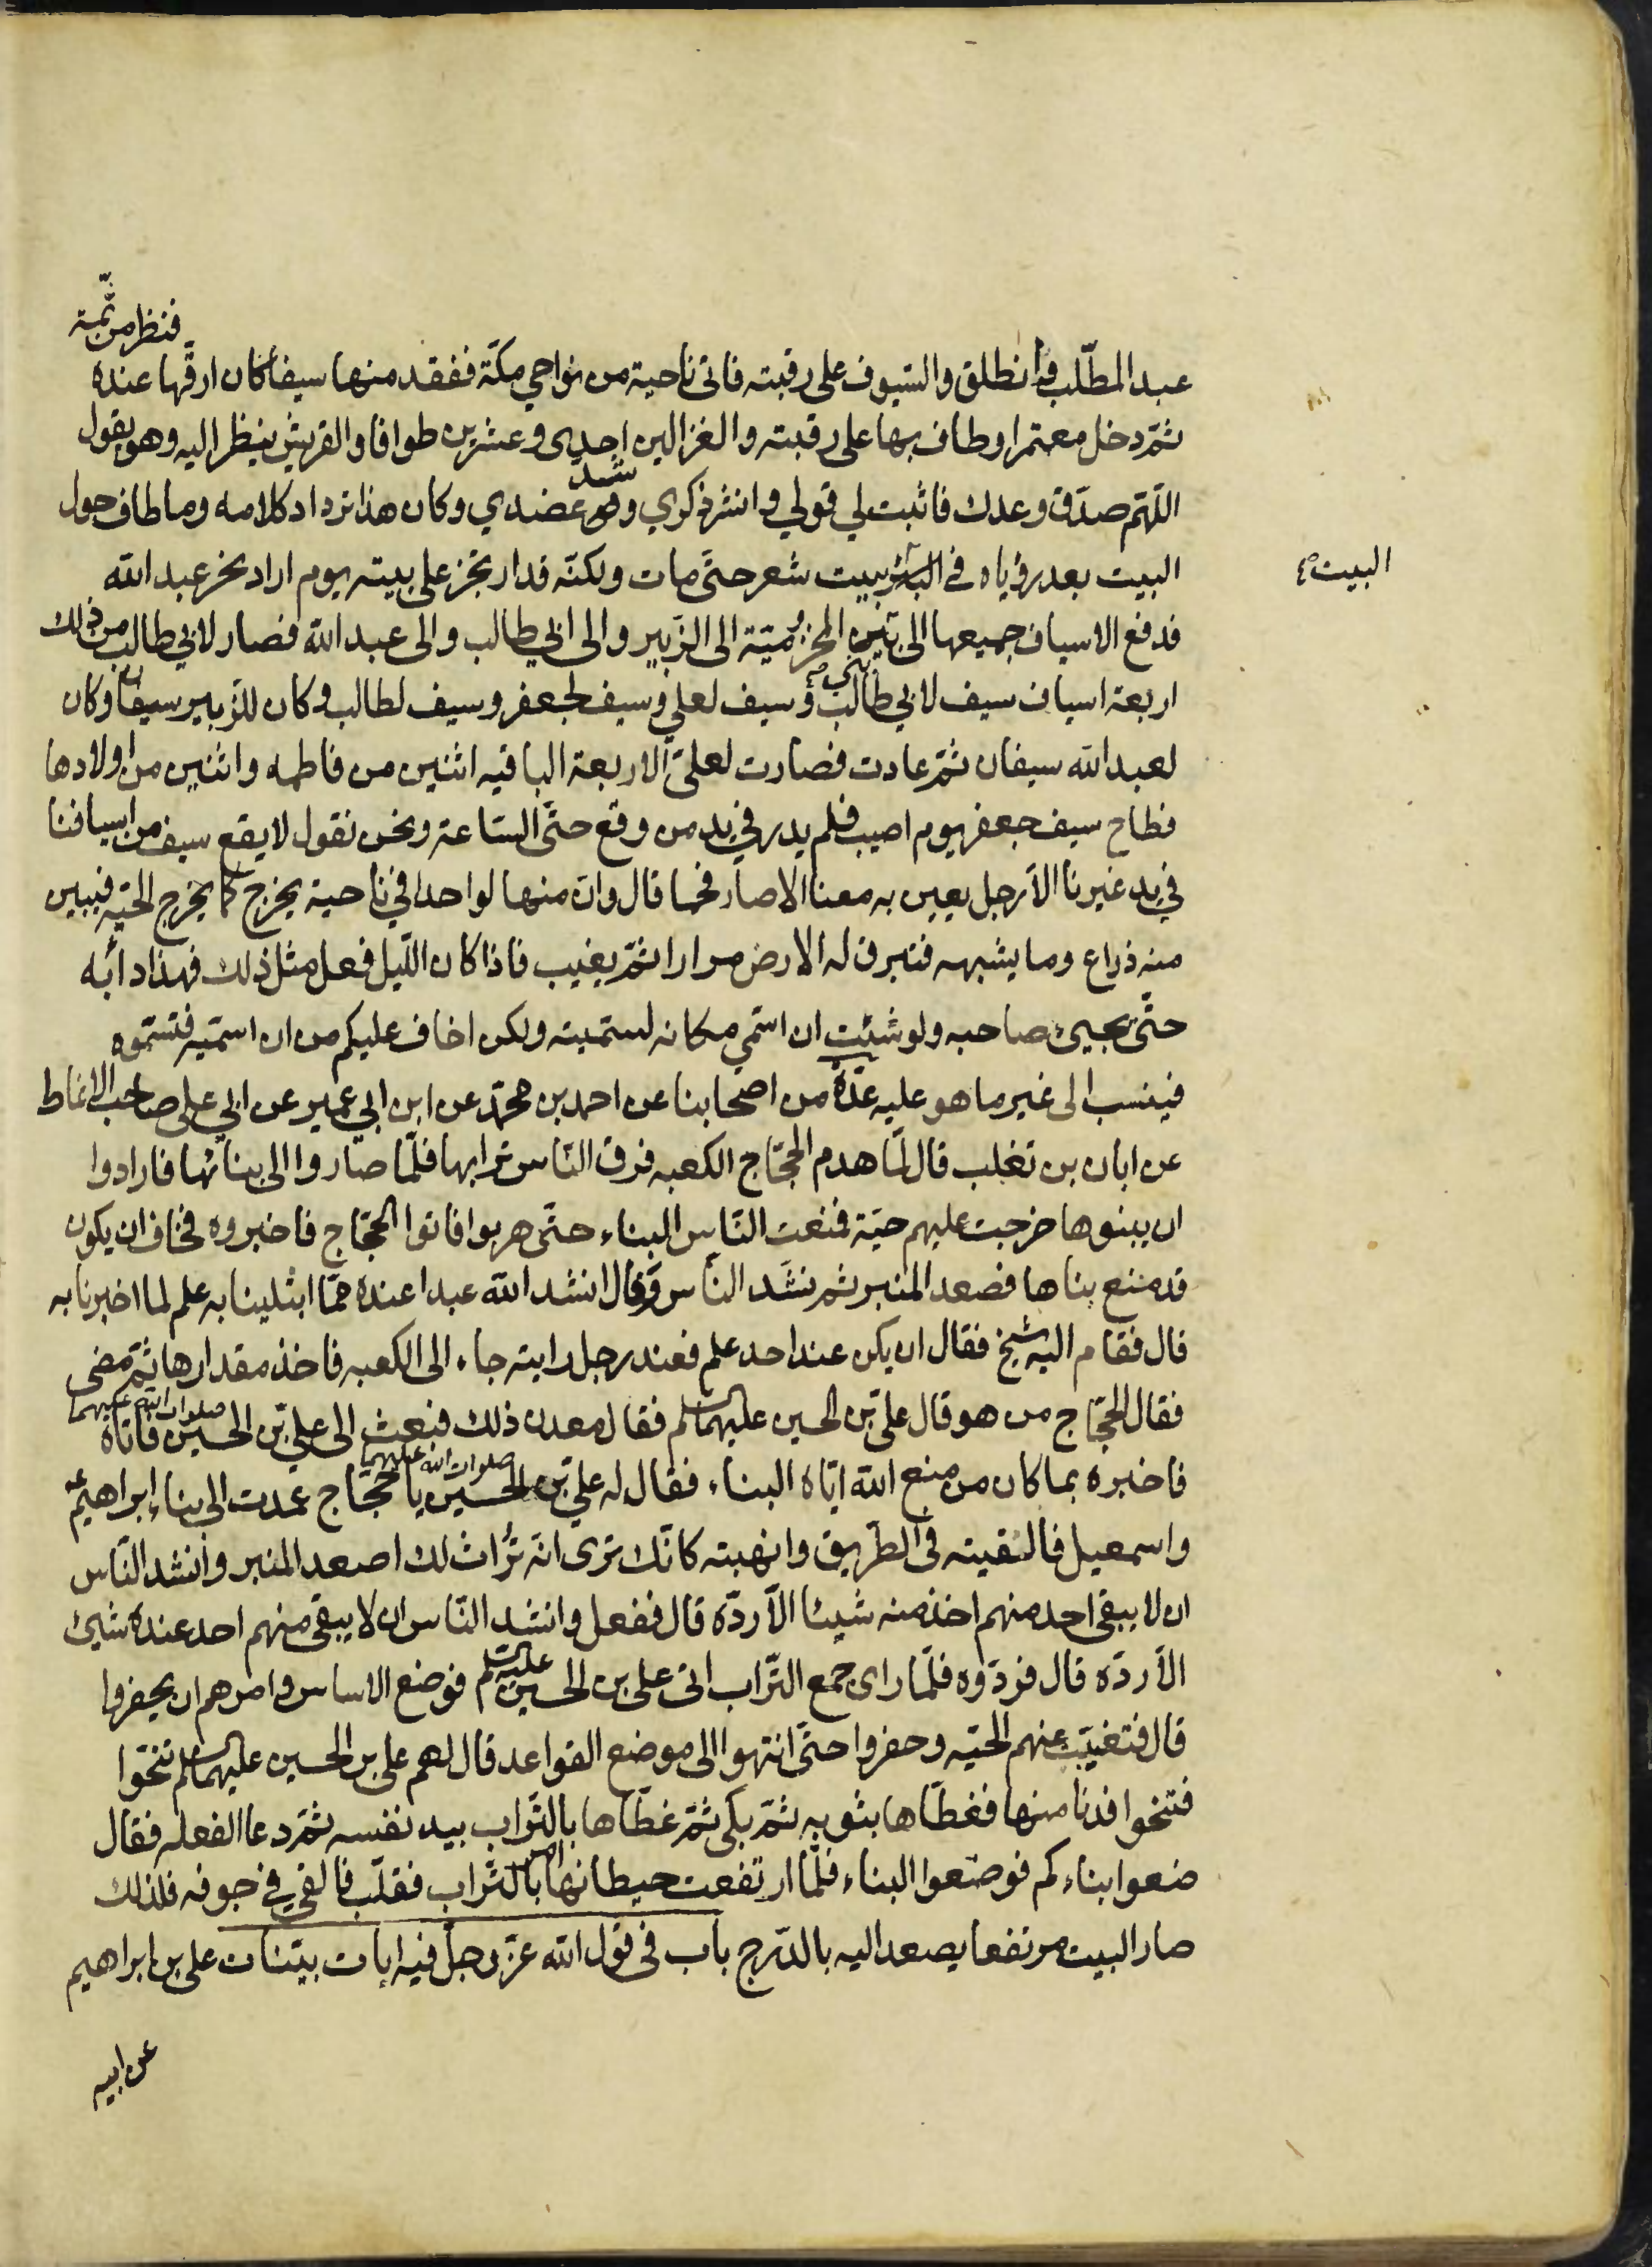 فنظر من ثمّة
عبد المطّلب وانطلق والسّيوف على رقبته فاتى ناحية من نواحي مكّة ففقد منها سيفا كان ارقّها عنده
ثمّ دخل معتمرا وطاف بها على رقبته والغزالين احدى وعشرين طوافا والقريش ينظر اليه وهو يقول
شد
اللّهمّ صدّق وعدك فاثبت لي قولي وانشر ذكري وشد عضدي وكان هذا ترداد كلامه وما طاف حول
البيت
البيت بعد رؤياه في البئر ببيت شعر حتّى مات ولكنّه قد ارتجز على بيته يوم اراد نحر عبد الله
فدفع الاسياف جميعها الى بني المخزوميّة الى الزّبير والى ابي طالب والى عبد الله فصار لابي طالب من ذلك
اربعة اسياف سيف لابي طالب وسيف لعلي وسيف لجعفر وسيف لطالب وكان للزّبير سيفان وكان
لعبد الله سيفان ثمّ عادت فصارت لعليّ الاربعة الباقيه اثنين من فاطمه واثنين من اولادها
فطاح سيف جعفر يوم اصيب فلم يدر في يد من وقع حتّى السّاعة ونحن نقول لا يقع سيف من اسيافنا
في يد غيرنا الّا رجل يعين به معنا الا صار فحما قال وانّ منها لواحدا في ناحية يخرج كما يخرج الحيّه فيبين
منه ذراع وما يشبهه فتبرق له الارض مرارا ثمّ يغيب فاذا كان اللّيل فعل مثل ذلك فهذا دأبه
حتّى يجيئ صاحبه ولو شئت ان اسمّي مكانه لسمّيته ولكن اخاف عليكم من ان اسمّيه فتسمّوه
فينسب الى غير ما هو عليه عدّة من اصحابنا عن احمد بن محمّد عن ابن ابي عمير عن ابي علي صاحب الانماط
عن ابان بن تغلب قال لمّا هدم الحجّاج الكعبه فرق النّاس ترابها فلمّا صاروا الى بنائها فارادوا
ان يبنوها خرجت عليهم حيّة فمنعت النّاس البناء حتّى هربوا فاتوا الحجّاج فاخبروه فخاف ان يكون
قد منع بناها فصعد المنبر ثم نشد النّاس وقال انشد الله عبدا عنده ممّا ابتلينا به علم لما اخبرنا به
قال فقام اليه شيخ فقال ان يكن عند احد علم فعند رجل رايته جاء الى الكعبه فاخذ مقدارها ثمّ مضى
فقال الحجّاج من هو قال عليّ بن الحسين عليهما السلم فقال معدن ذلك فبعث الى علي بن الحسين صلوات الله عليهما فاتاه
فاخبره بما كان من منع الله ايّاه البناء فقال له علي بن الحسين صلوات الله عليهما يا حجّاج عمدت الى بناء ابراهيم
واسمعيل فالقيته في الطّريق وانهبته كانّك ترى انّه تراث لك اصعد المنبر وانشد النّاس
ان لا يبقى احد منهم اخذ منه شيئا الّا ردّه قال ففعل وانشد النّاس ان لا يبقى منهم احد عنده شيئ
الّا ردّه قال فردّوه فلمّا راى جمع التّراب اتى علي بن الحسين عليه السلم فوضع الاساس وامرهم ان يحفروا
قال فتغيّبت عنهم الحيّه وحفروا حتّى انتهوا الى موضع القواعد قال لهم علي بن الحسين عليهما السلم تنحّوا
فتنحوا فدنا منها فغطّاها بثوبه ثمّ بكى ثمّ غطّاها بالتّراب بيد نفسه ثمّ دعا الفعله فقال
ضعوا بناءكم فوضعوا البناء فلمّا ارتفعت حيطانها امر بالتّراب فقلّب فالقي في جوفه فلذلك
صار البيت مرتفعا يصعد اليه بالدّرج باب في قول الله عزّ وجلّ فيه ايات بيّنات علي بن ابراهيم
عن ابيه